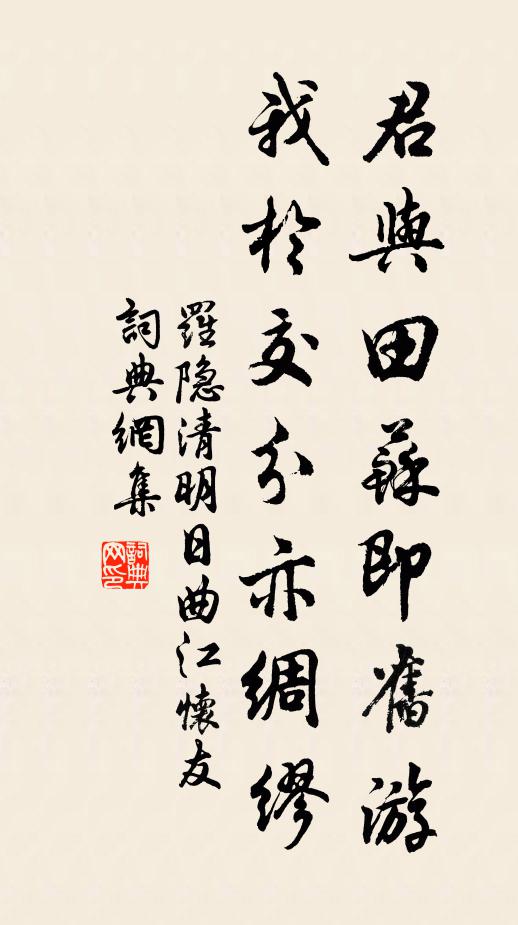 君與田蘇即舊游
我於交分亦綢繆
羅隐清明日曲江懷友
詞典網集
詞典网印